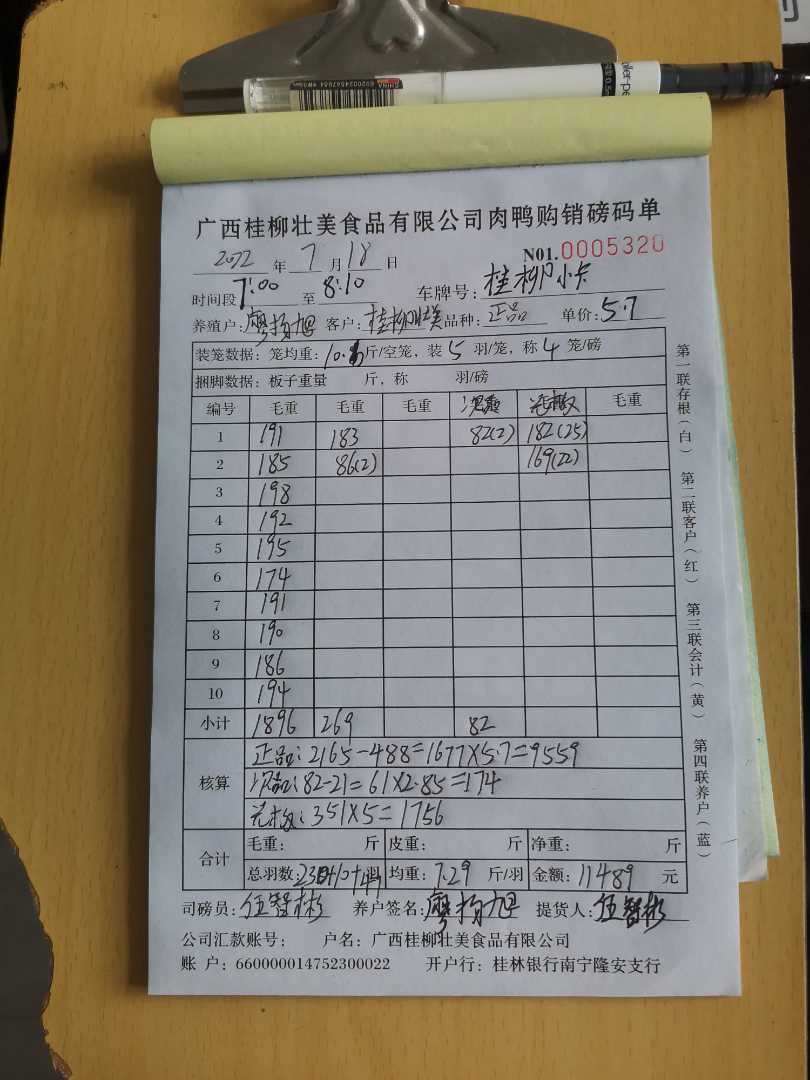 广西桂柳壮美食品有限公司肉鸭购销磅码单
2022 年 7 月 18 日 N01.0005320
时间段 7:00 至 8:10 车牌号: 桂柳小卡
养殖户: 廖扬旭 客户: 桂柳壮美 品种: 正品 单价: 5.7
装笼数据: 笼均重: 斤/空笼, 装 5 羽/笼, 称 4 笼/磅
捆脚数据: 板子重量 斤, 称 羽/磅
编号 毛重 毛重 毛重 次品 毛重
1 191 183 82(2) 182(25)
2 185 86(2) 169(22)
3 198
4 192
5 195
6 174
7 191
8 190
9 186
10 194
小计 1896 269 82
核算
正品: 2165-488=1677×5.7=9559
次品: 82-21=61×2.85=174
351×5=1756
合计
毛重: 斤 皮重: 斤 净重: 斤
总羽数: 230+10+47 羽 均重: 7.29 斤/羽 金额: 11489 元
司磅员: 伍智彬 养户签名: 廖扬旭 提货人: 伍智彬
公司汇款账号: 户名: 广西桂柳壮美食品有限公司
账 户: 660000014752300022 开户行: 桂林银行南宁隆安支行
第一联存根(白) 第二联客户(红) 第三联会计(黄) 第四联养户(蓝)